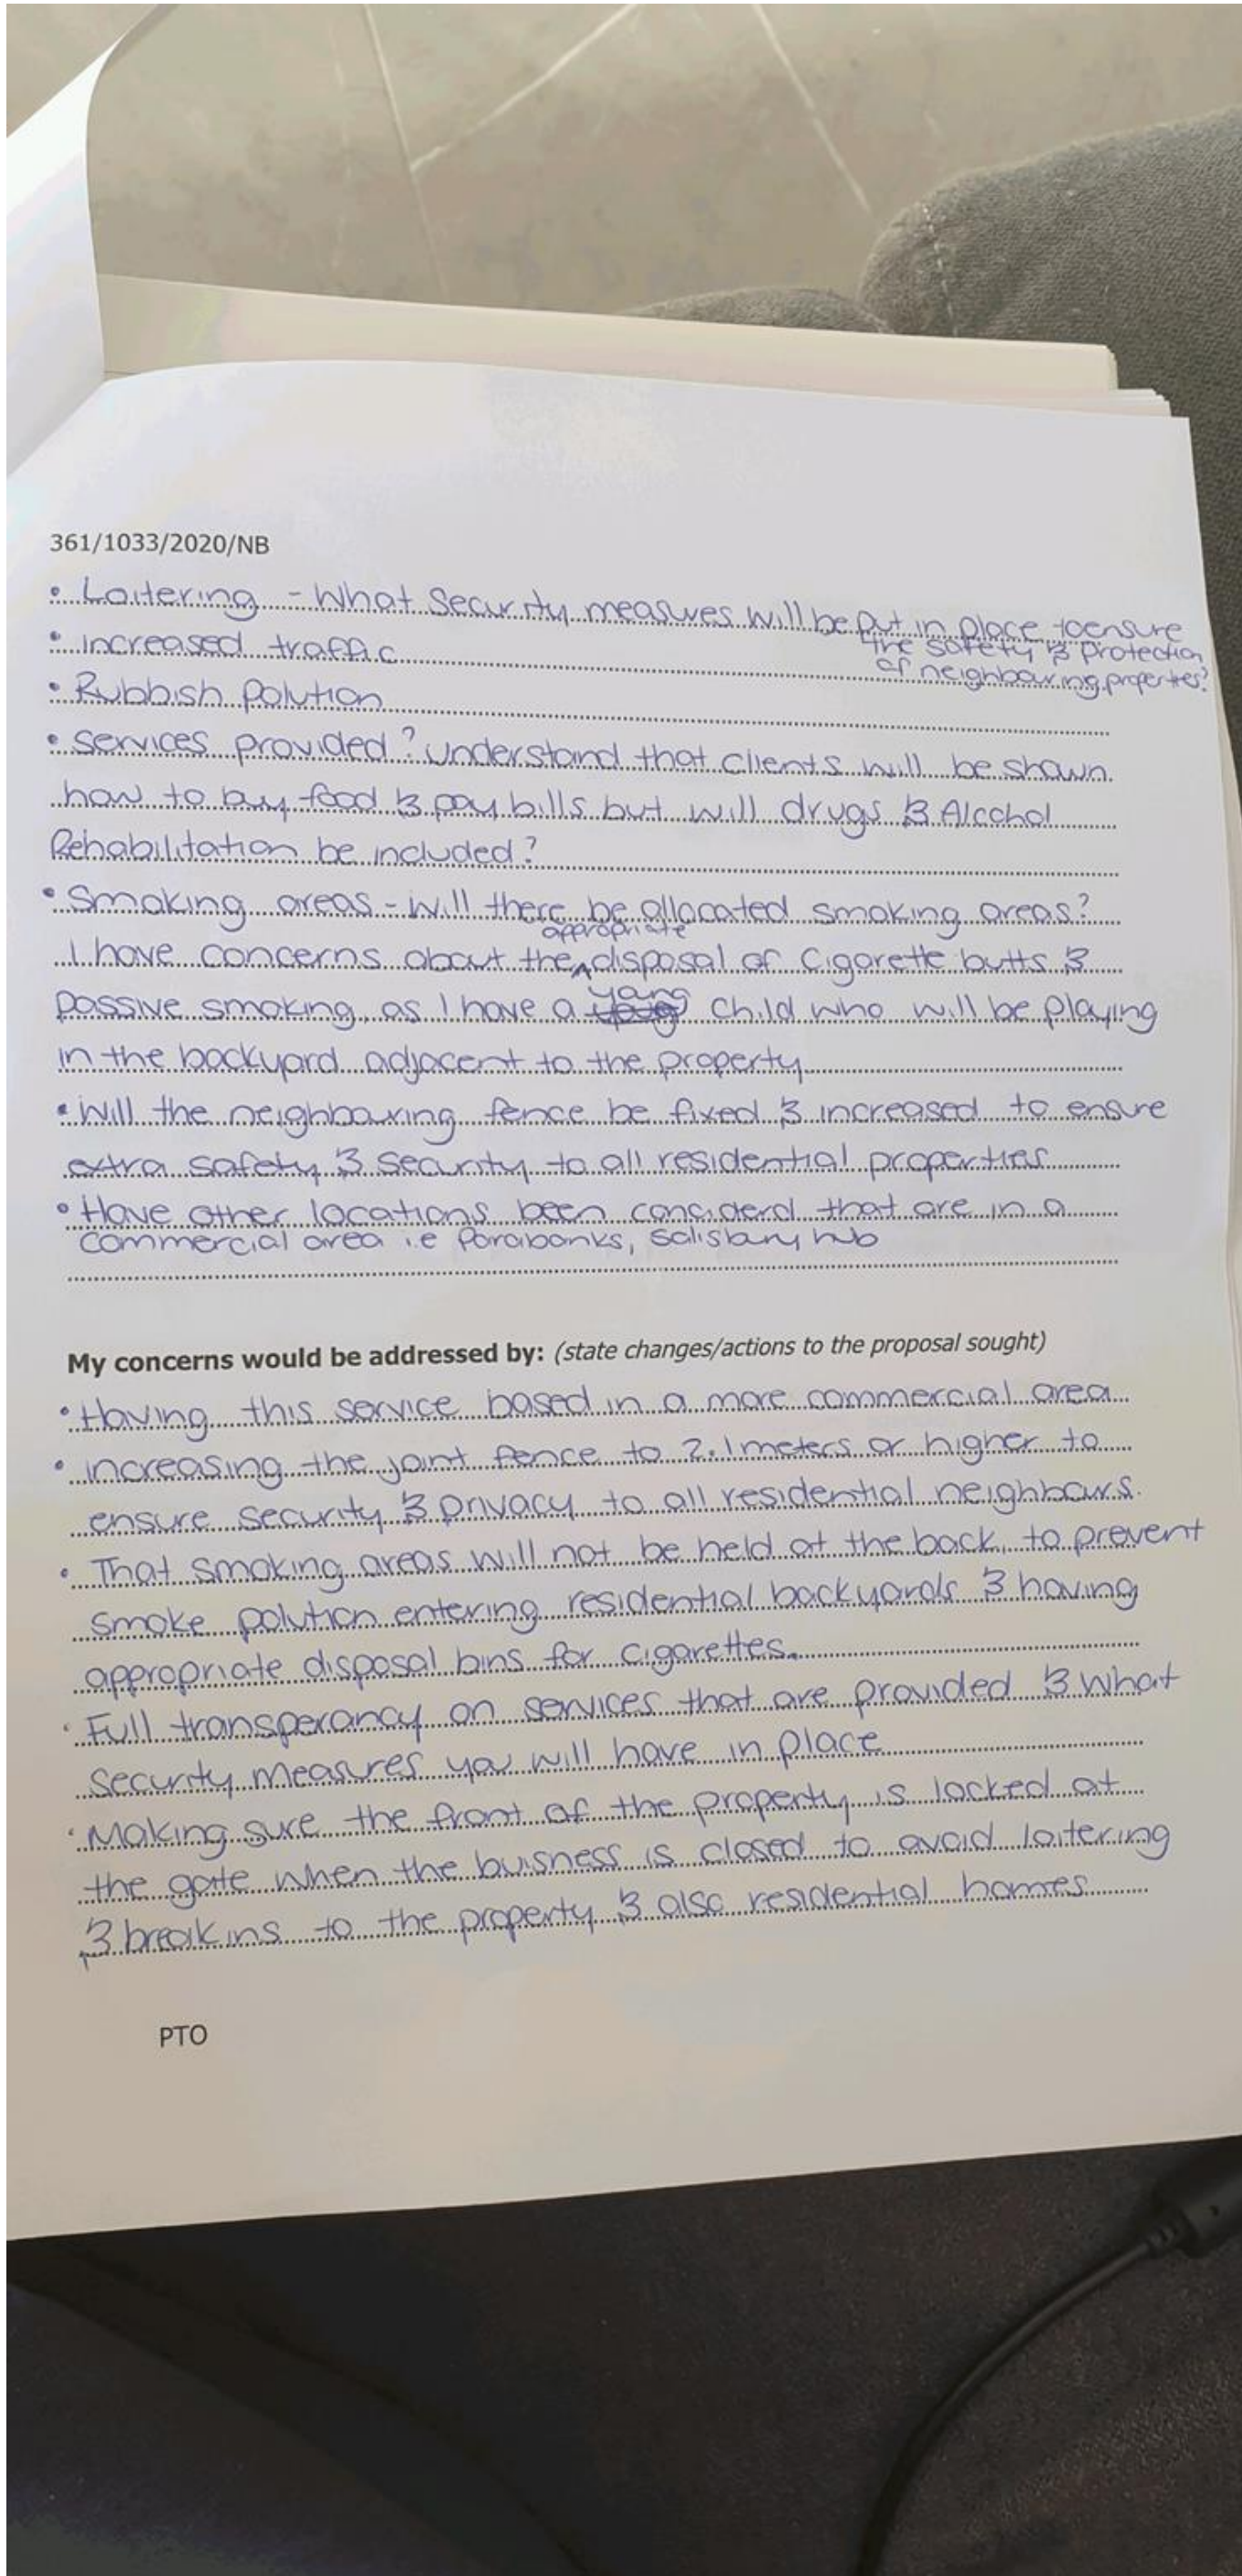 361/1033/2020/NB
• Loitering - What Security measures will be put in place to ensure
the safety & protection
of neighbouring properties?
• increased traffic
• Rubbish Polution
• services provided? Understand that clients will be shown
how to buy food & pay bills but will drugs & Alcohol
Rehabilitation be included?
• Smoking areas - will there be allocated smoking areas?
appropriate
I have concerns about the ^ disposal of cigarette butts &
young
passive smoking, as I have a child who will be playing
in the backyard adjacent to the property
• Will the neighbouring fence be fixed & increased to ensure
extra safety & security to all residential properties
• Have other locations been considerd that are in a
commercial area i.e Parabanks, Salisbury hub
My concerns would be addressed by: (state changes/actions to the proposal sought)
• Having this service based in a more commercial area
• increasing the joint fence to 2.1 meters or higher to
ensure security & privacy to all residential neighbours.
• That smoking areas will not be held at the back, to prevent
smoke polution entering residential backyards & having
appropriate disposal bins for cigarettes.
• Full transperancy on services that are provided & what
security measures you will have in place
• Making sure the front of the property is locked at
the gate when the buisness is closed to avoid loitering
& break ins to the property & also residential homes
PTO